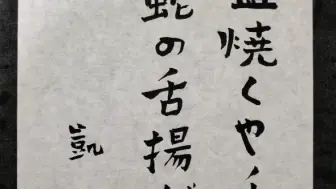 焼くや
蛇の舌揚
凱